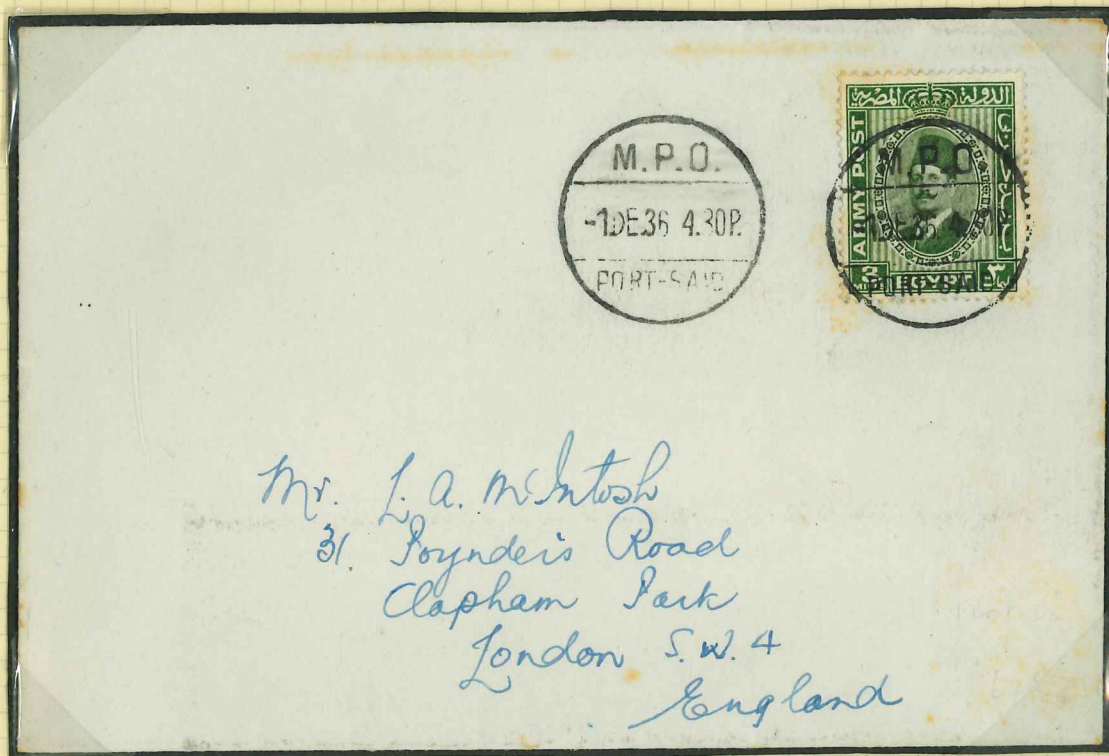 M.P.O.
-1.DE.36 4.30P.
PORT-SAID
الدولة المصرية
ARMY POST
M.P.O
1.DE.36 4.30P
3 EGYPT ٣
PORT-SAID
Mr. L. A. McIntosh
31. Poynders Road
Clapham Park
London S.W.4
England